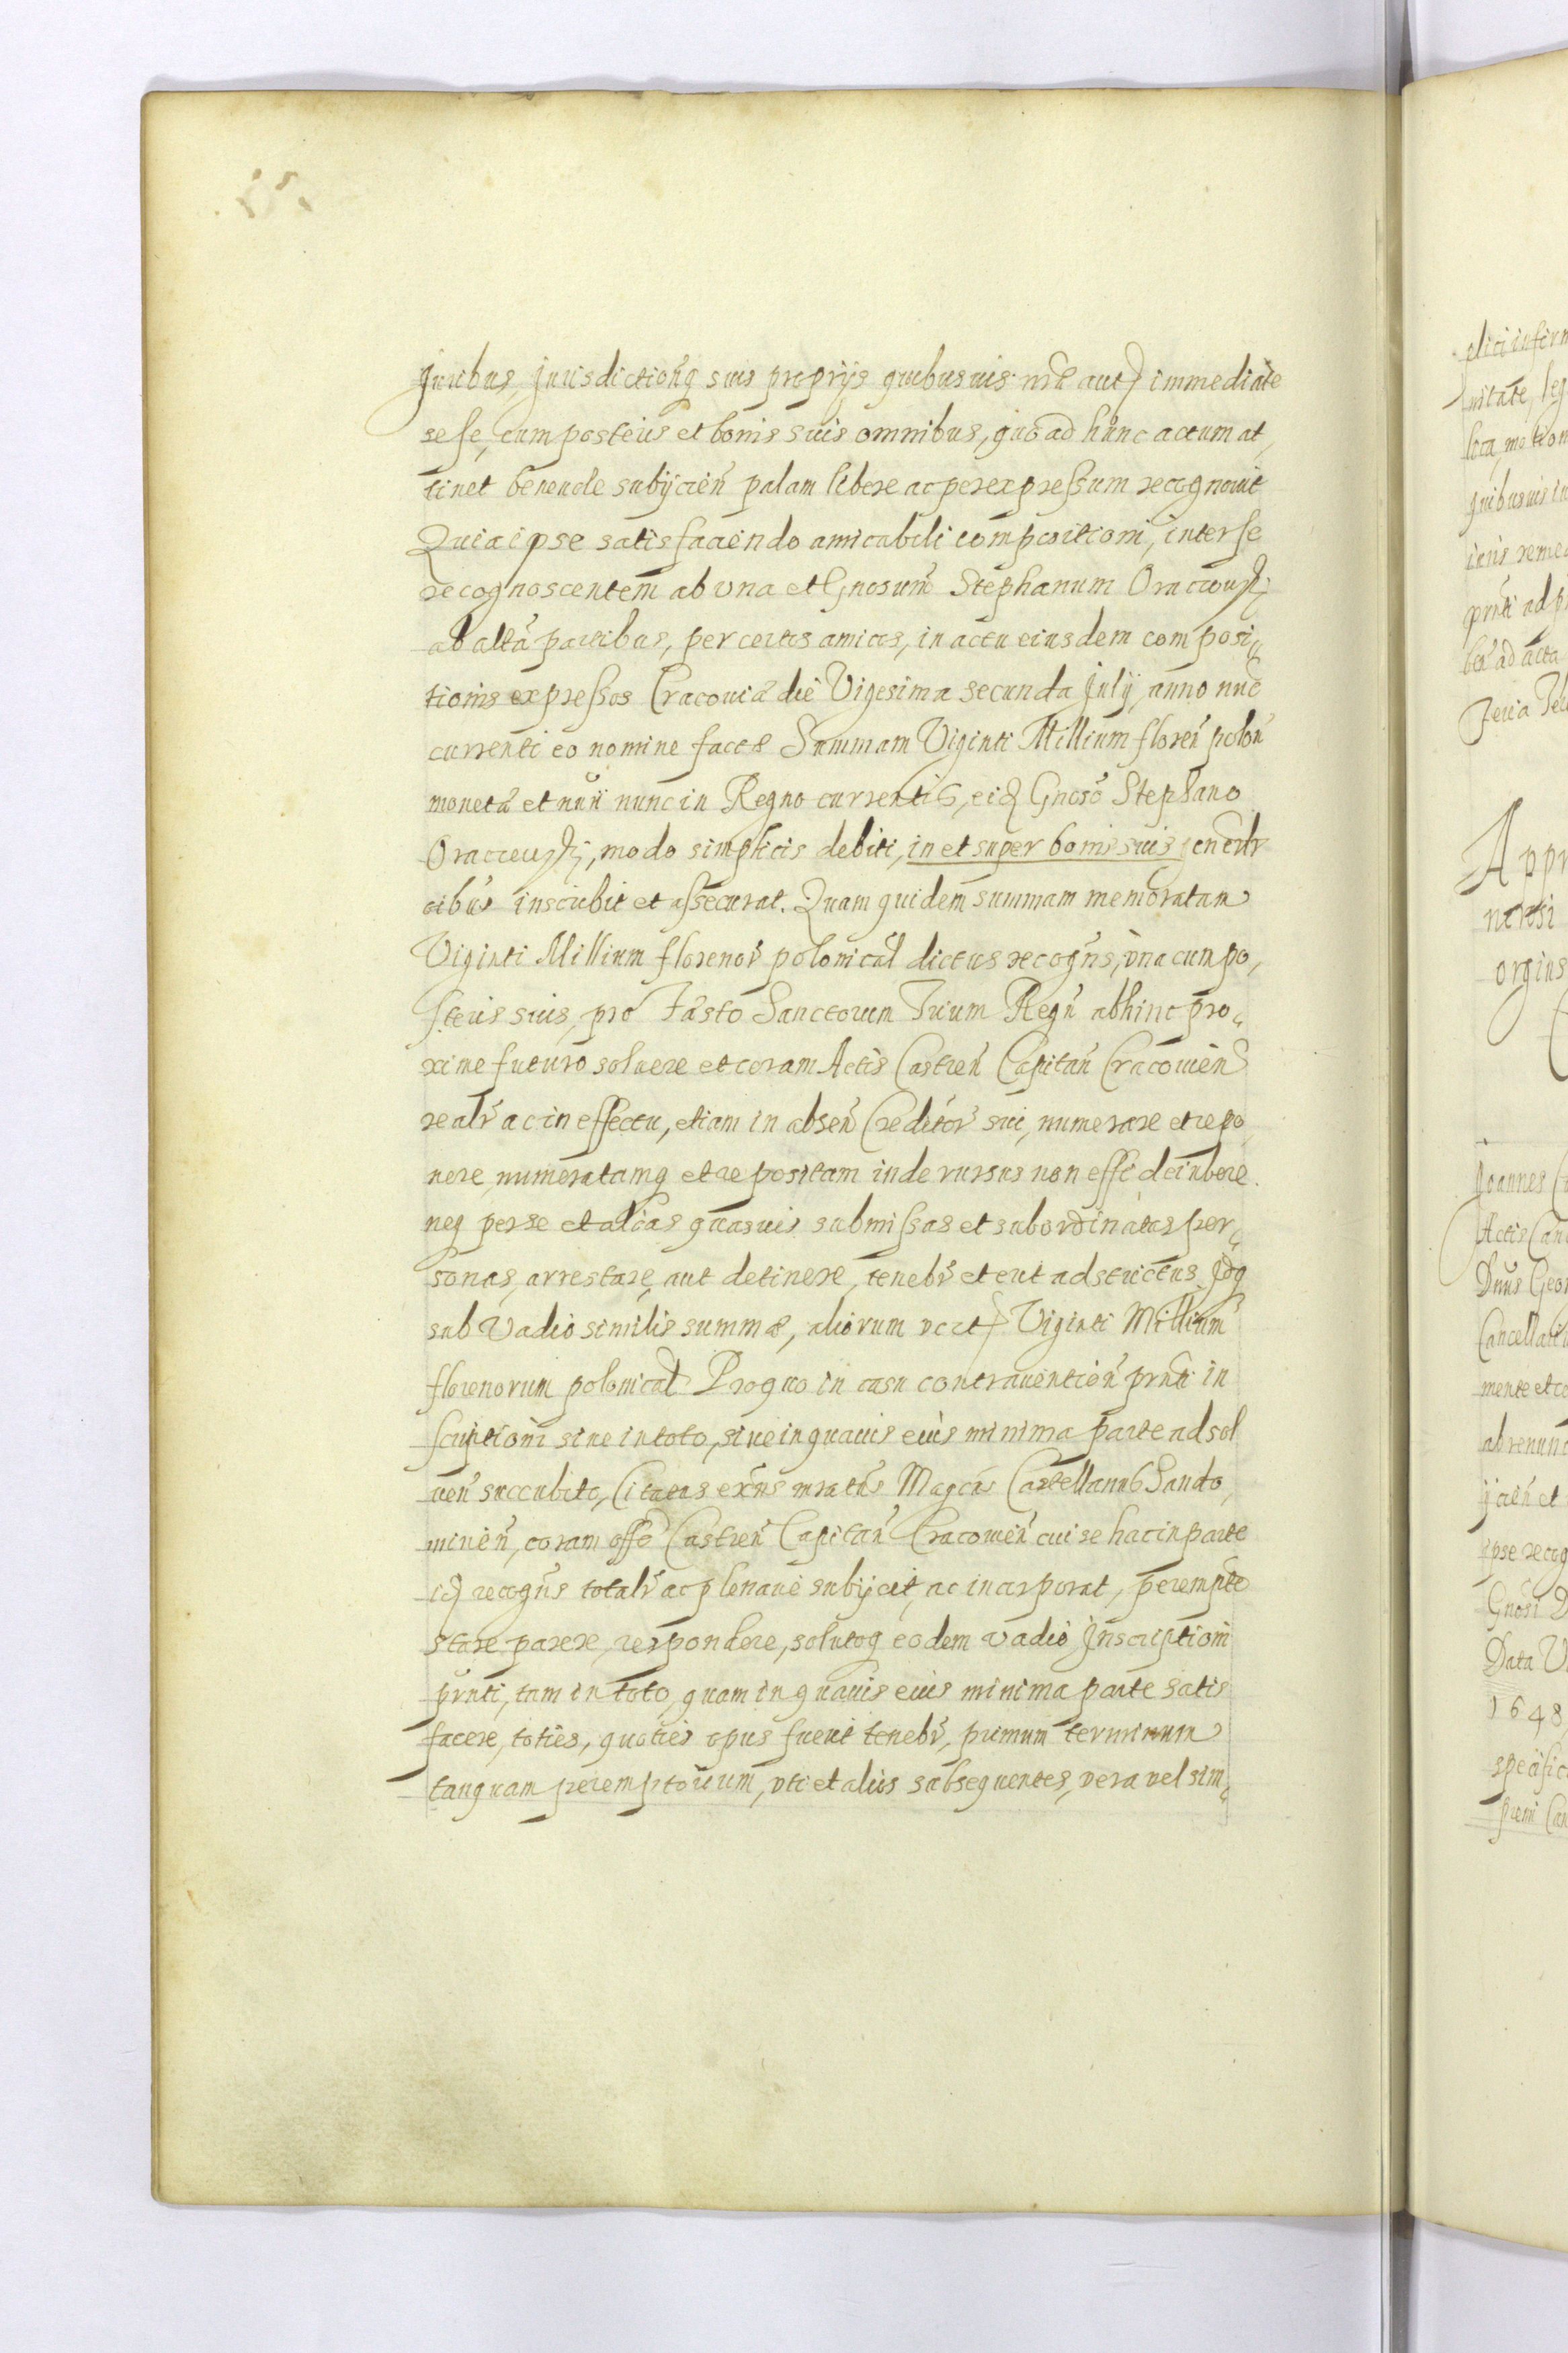 Juribus, Jurisdictionq suis proprijs quibusuis nrã aut immediate
sese, cum posteris et bonis suis omnibus, quo ad hunc actum at,
tinet benende subijcien̄ palam libere ac per expressum recognouit
Quia ipse satisfaciendo amicabili compositioni, inter se
recognoscentem̄ ab vna et Gnosum̄ Stephanum Oraczowsk
ab altâ partibus, per certos amicos, in actu eiusdem composi,,
tionis expressos Cracouiæ die Vigesima secunda July anno nūc
currenti eo nomine factæ Summam Viginti Millium floren̄ polon̄
monetæ et nūri nunc in Regno currentis, eid Gnoso Stephano
Oraczewsk, modo simplicis debiti, in et super bonis suis generlr
cibus inscribit et assecurat. Quam quidem summam memoratam
Viginti Millium florenor̄ polonical dictus recogn̄s, vna cum po,
steris suis, pro Fæsto Sanctorum Trium Regū abhinc pro,,
xime futuro soluere et coram Actis Castren̄ Capitan̄ Cracouien̄
realr̄ ac in effectu, etiam in absen̄ Creditor̄ sui, numerare et repo
nere, numeratamq et repositam inde rursus non esse deinbere.
neq per se et alias quasuis submissas et subordinatas per,,
sonas, arrestare, aut detinere, tenebr̄ et erit adstrictus Idq
sub Vadio similis summæ, aliorum vert Viginti Millium
florenorum polonical Pro quo in casu contrauention̄ prnti in
scriptioni siue in toto, siue in quauis eius minima parte ad sol
uen̄ succubito, Citatus exn̄s mratūs Magcūs Castellanus Sando,
mirien̄, coram offo Castren̄ Capitan̄ Cracouien̄ cui se hac in parte
id recogn̄s totalr̄ ac plenarie subijcit, ac incorporat, perempte
stare parere, respondere, solutoq eodem vadio Inscriptioni
prnti, tam in toto, quam in quauis eius minima parte satis
facere, toties, quoties opus fuerit tenebr̄, primum terminum
tanquam peremptorium, vti et alios subsequentes, vera vel sim,,